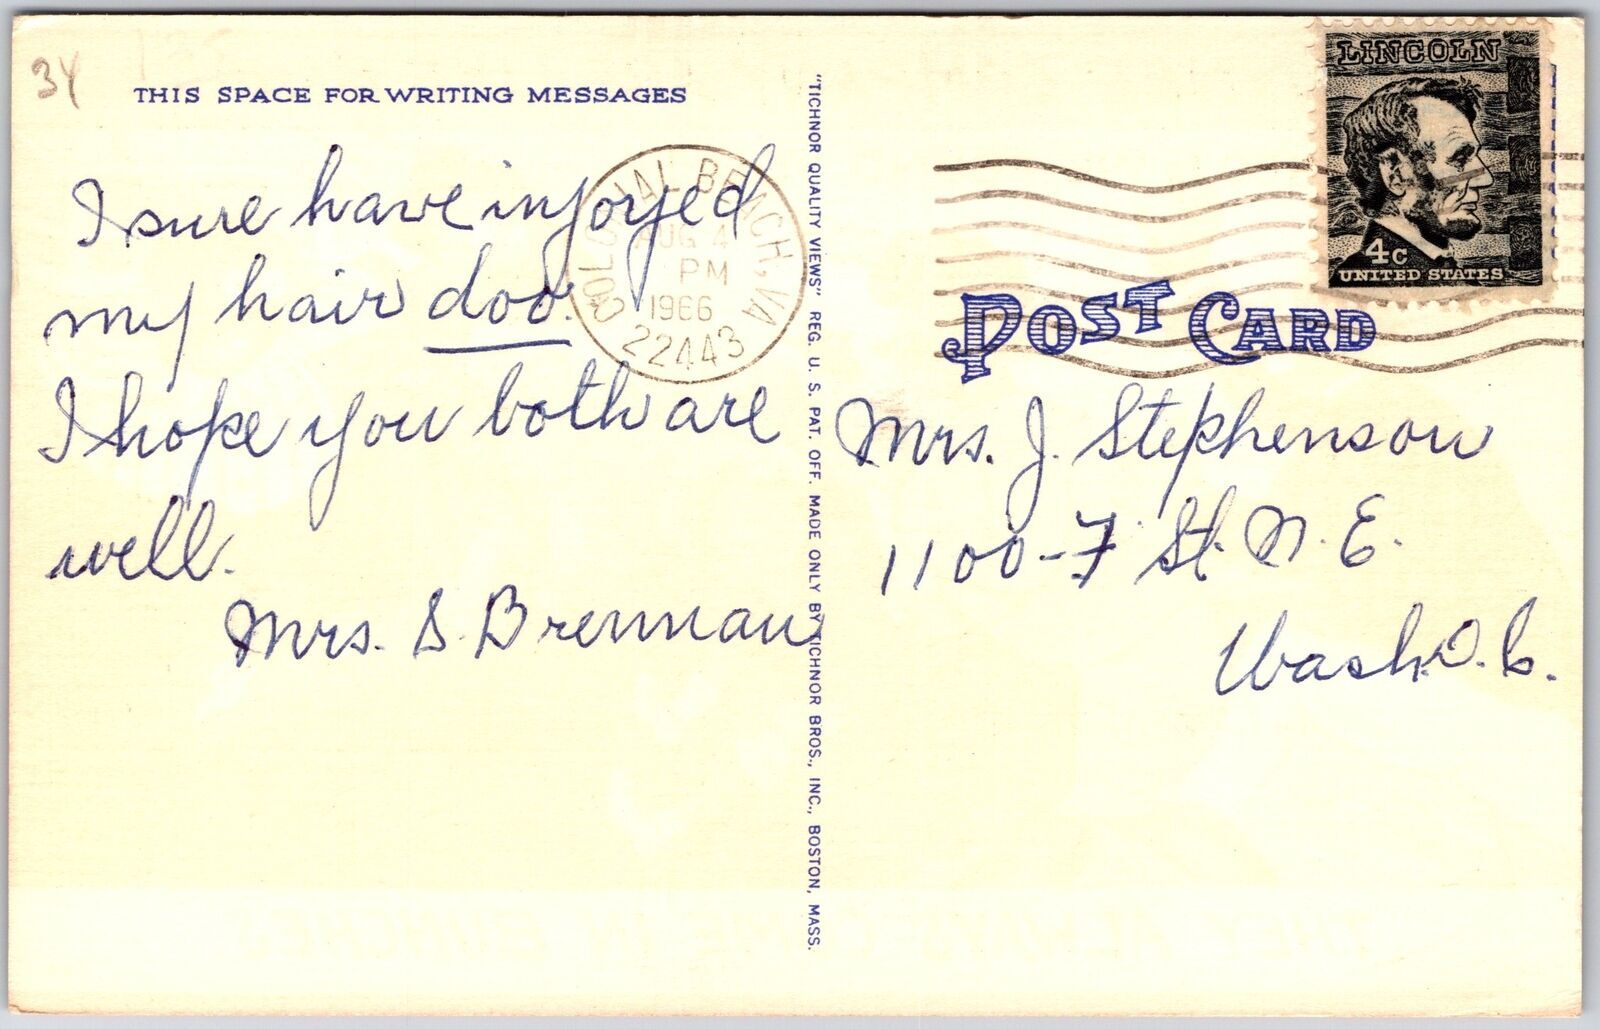 34
THIS SPACE FOR WRITING MESSAGES
I sure have injoyed
my hair doo.
I hope you both are
well.
Mrs. S. Brennan
COLONIAL BEACH, VA
AUG 4
PM
1966
22443
"TICHNOR QUALITY VIEWS" REG. U. S. PAT. OFF. MADE ONLY BY TICHNOR BROS., INC., BOSTON, MASS.
LINCOLN
4c
UNITED STATES
POST CARD
Mrs. J. Stephenson
1100-7 St. N. E.
Wash. D. C.
THEY ALWAYS COME IN BUNCHES